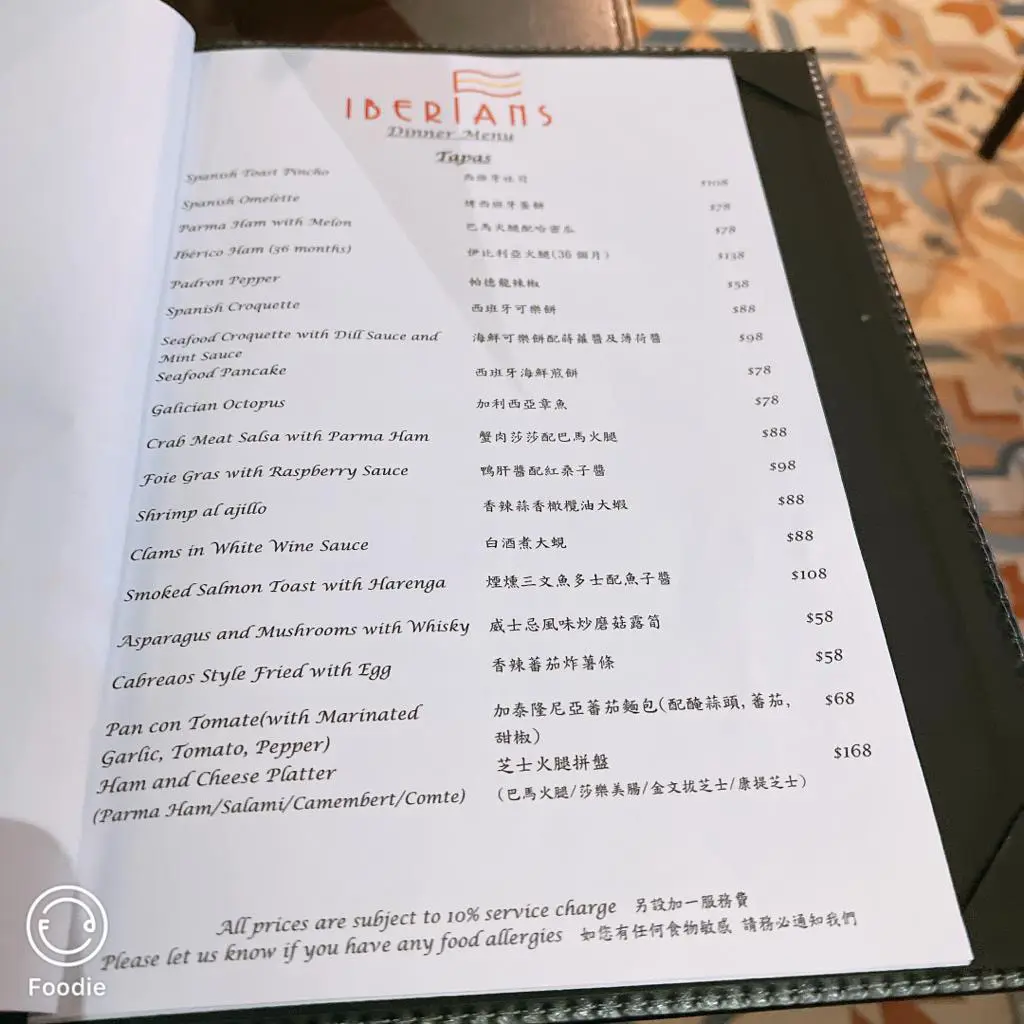 IBERIANS
Dinner Menu
Tapas
Spanish Toast Pincho 西班牙吐司 $108
Spanish Omelette 烤西班牙蛋餅 $78
Parma Ham with Melon 巴馬火腿配哈密瓜 $78
Ibérico Ham (36 months) 伊比利亞火腿(36 個月) $138
Padron Pepper 帕德龍辣椒 $58
Spanish Croquette 西班牙可樂餅 $88
Seafood Croquette with Dill Sauce and 海鮮可樂餅配蒔蘿醬及薄荷醬 $98
Mint Sauce
Seafood Pancake 西班牙海鮮煎餅 $78
Galician Octopus 加利西亞章魚 $78
Crab Meat Salsa with Parma Ham 蟹肉莎莎配巴馬火腿 $88
Foie Gras with Raspberry Sauce 鴨肝醬配紅桑子醬 $98
Shrimp al ajillo 香辣蒜香橄欖油大蝦 $88
Clams in White Wine Sauce 白酒煮大蜆 $88
Smoked Salmon Toast with Harenga 煙燻三文魚多士配魚子醬 $108
Asparagus and Mushrooms with Whisky 威士忌風味炒磨菇露筍 $58
Cabreaos Style Fried with Egg 香辣蕃茄炸薯條 $58
Pan con Tomate(with Marinated 加泰隆尼亞蕃茄麵包(配醃蒜頭, 蕃茄, $68
Garlic, Tomato, Pepper) 甜椒)
Ham and Cheese Platter 芝士火腿拼盤 $168
(Parma Ham/Salami/Camembert/Comte) (巴馬火腿/莎樂美腸/金文拔芝士/康提芝士)
All prices are subject to 10% service charge 另設加一服務費
Please let us know if you have any food allergies 如您有任何食物敏感 請務必通知我們
Foodie